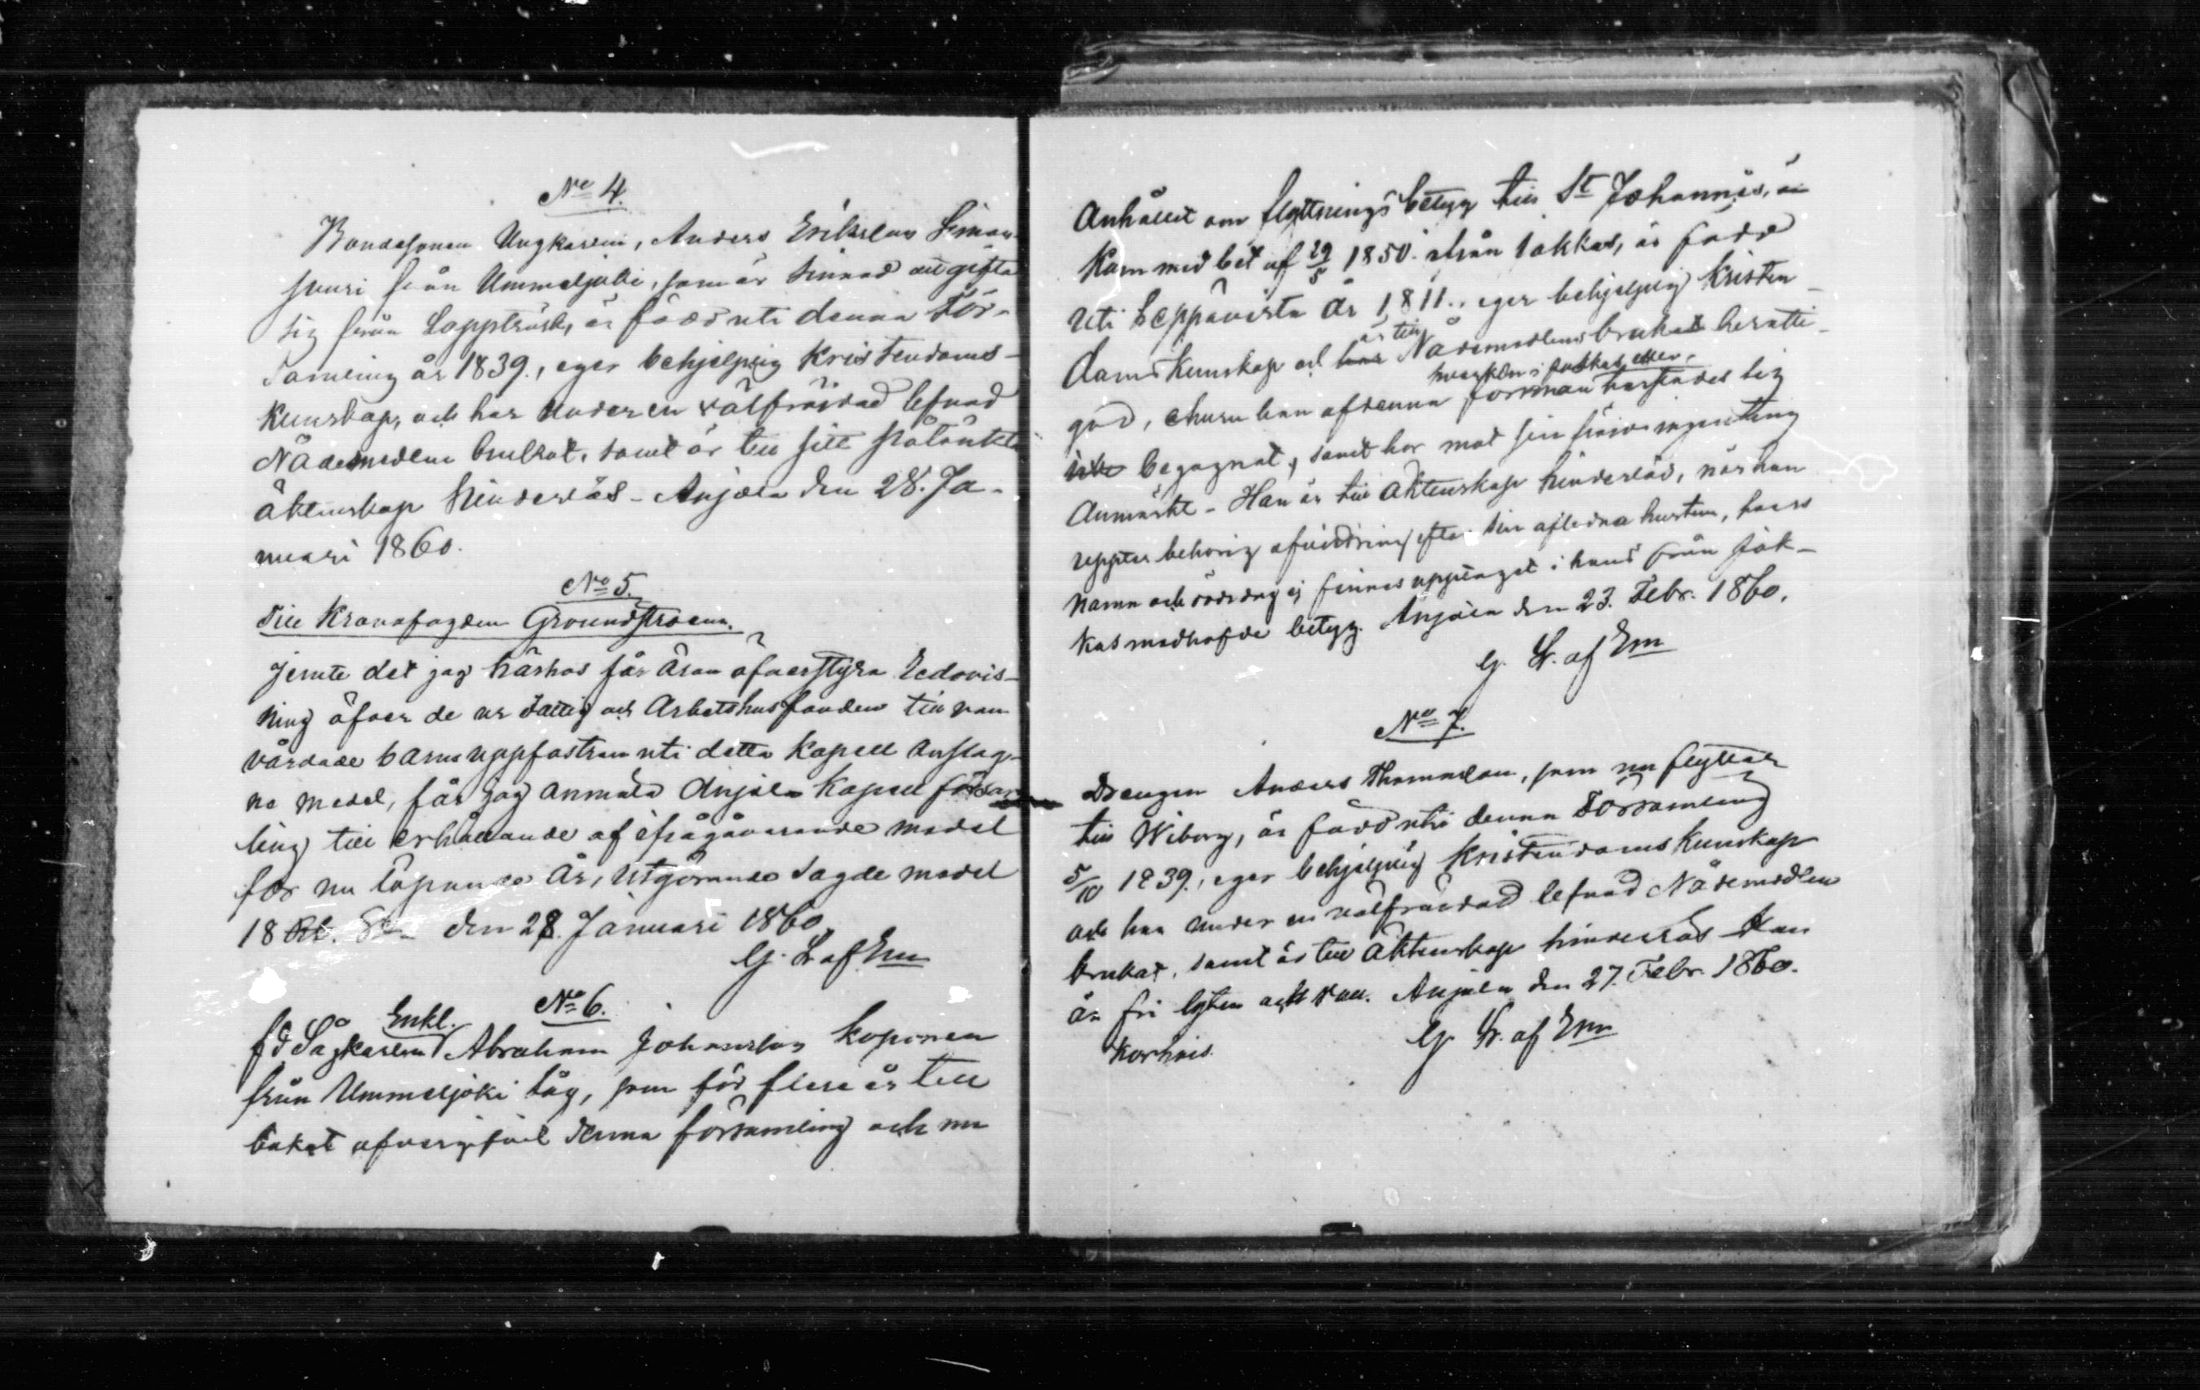 No 4.
Bondesonen Ungkarlen, Anders Erikslan Siman-
puni från Ummeljoki, som är sinnad att gifta
sig från Lappträsk, är född uti denna För-
samling år 1839., eger behjelplig Kristendoms-
kunskap, och har under en välfräjdad lefnad
Nådemedlen brukat, samt är till sitt påtänkta
äktenskap hinderlös - Anjala den 28. Ja-
nuari 1860.
No 5.
Till Kronofogden Groundstroem.
Jemte det jag härhos får äran öfverstyra Redovis-
ning öfver de ur Fattig och Arbetshusfonden till van
vårdade barns uppfostran uti detta Kapell anslag-
na medel, får jag anmäla Anjala Kapell försam
ling till erhållande af ifrågavarande medel
för nu löpande År, utgörande sagde medel
18 Rbl. den 28. Januari 1860.
G. Lr af Em
No 6.
Enkl.
fd Sågkarlen Abraham Johanslan Koponen
från Ummeljoki såg, som för flere år till
baket öfvergifvit denna församling och nu
Anhållit om flyttningsbetyg till St Johannes, är
kom med bet. af 29/5 1850. ifrån Jokkas, är född
uti Leppävirta år 1811., eger behjelplig Kristen-
är till
doms kunskap och har Nådemedlens brukat beratti-
hvarken i Jokkas eller
gad, ehuru han af denna förmån härstädes sig
icke begagnat, samt har mot sin fräjd ingenting
Anmärkt - Han är till Äktenskap hinderlös, när han
uppter behörig afvittring efter sin aflidna hustru, hvars
namn och dödsdag ej finnes upptaget i hans från Jok-
kas medhafde betyg. Anjala den 23. Febr. 1860.
G. Lr. af Em
No 7.
Drengen Anders Thomaslan, som nu flyttar
till Wiborg, är född uti denna Församling
5/10 1839., eger behjelplig Kristendoms Kunskap
och har under en välfräjdad lefnad Nådemedlen
brukat, samt är till Äktenskap hinderlös Han
är fri lyten och van. Anjala den 27. Febr. 1860.
G. Lr. af Em